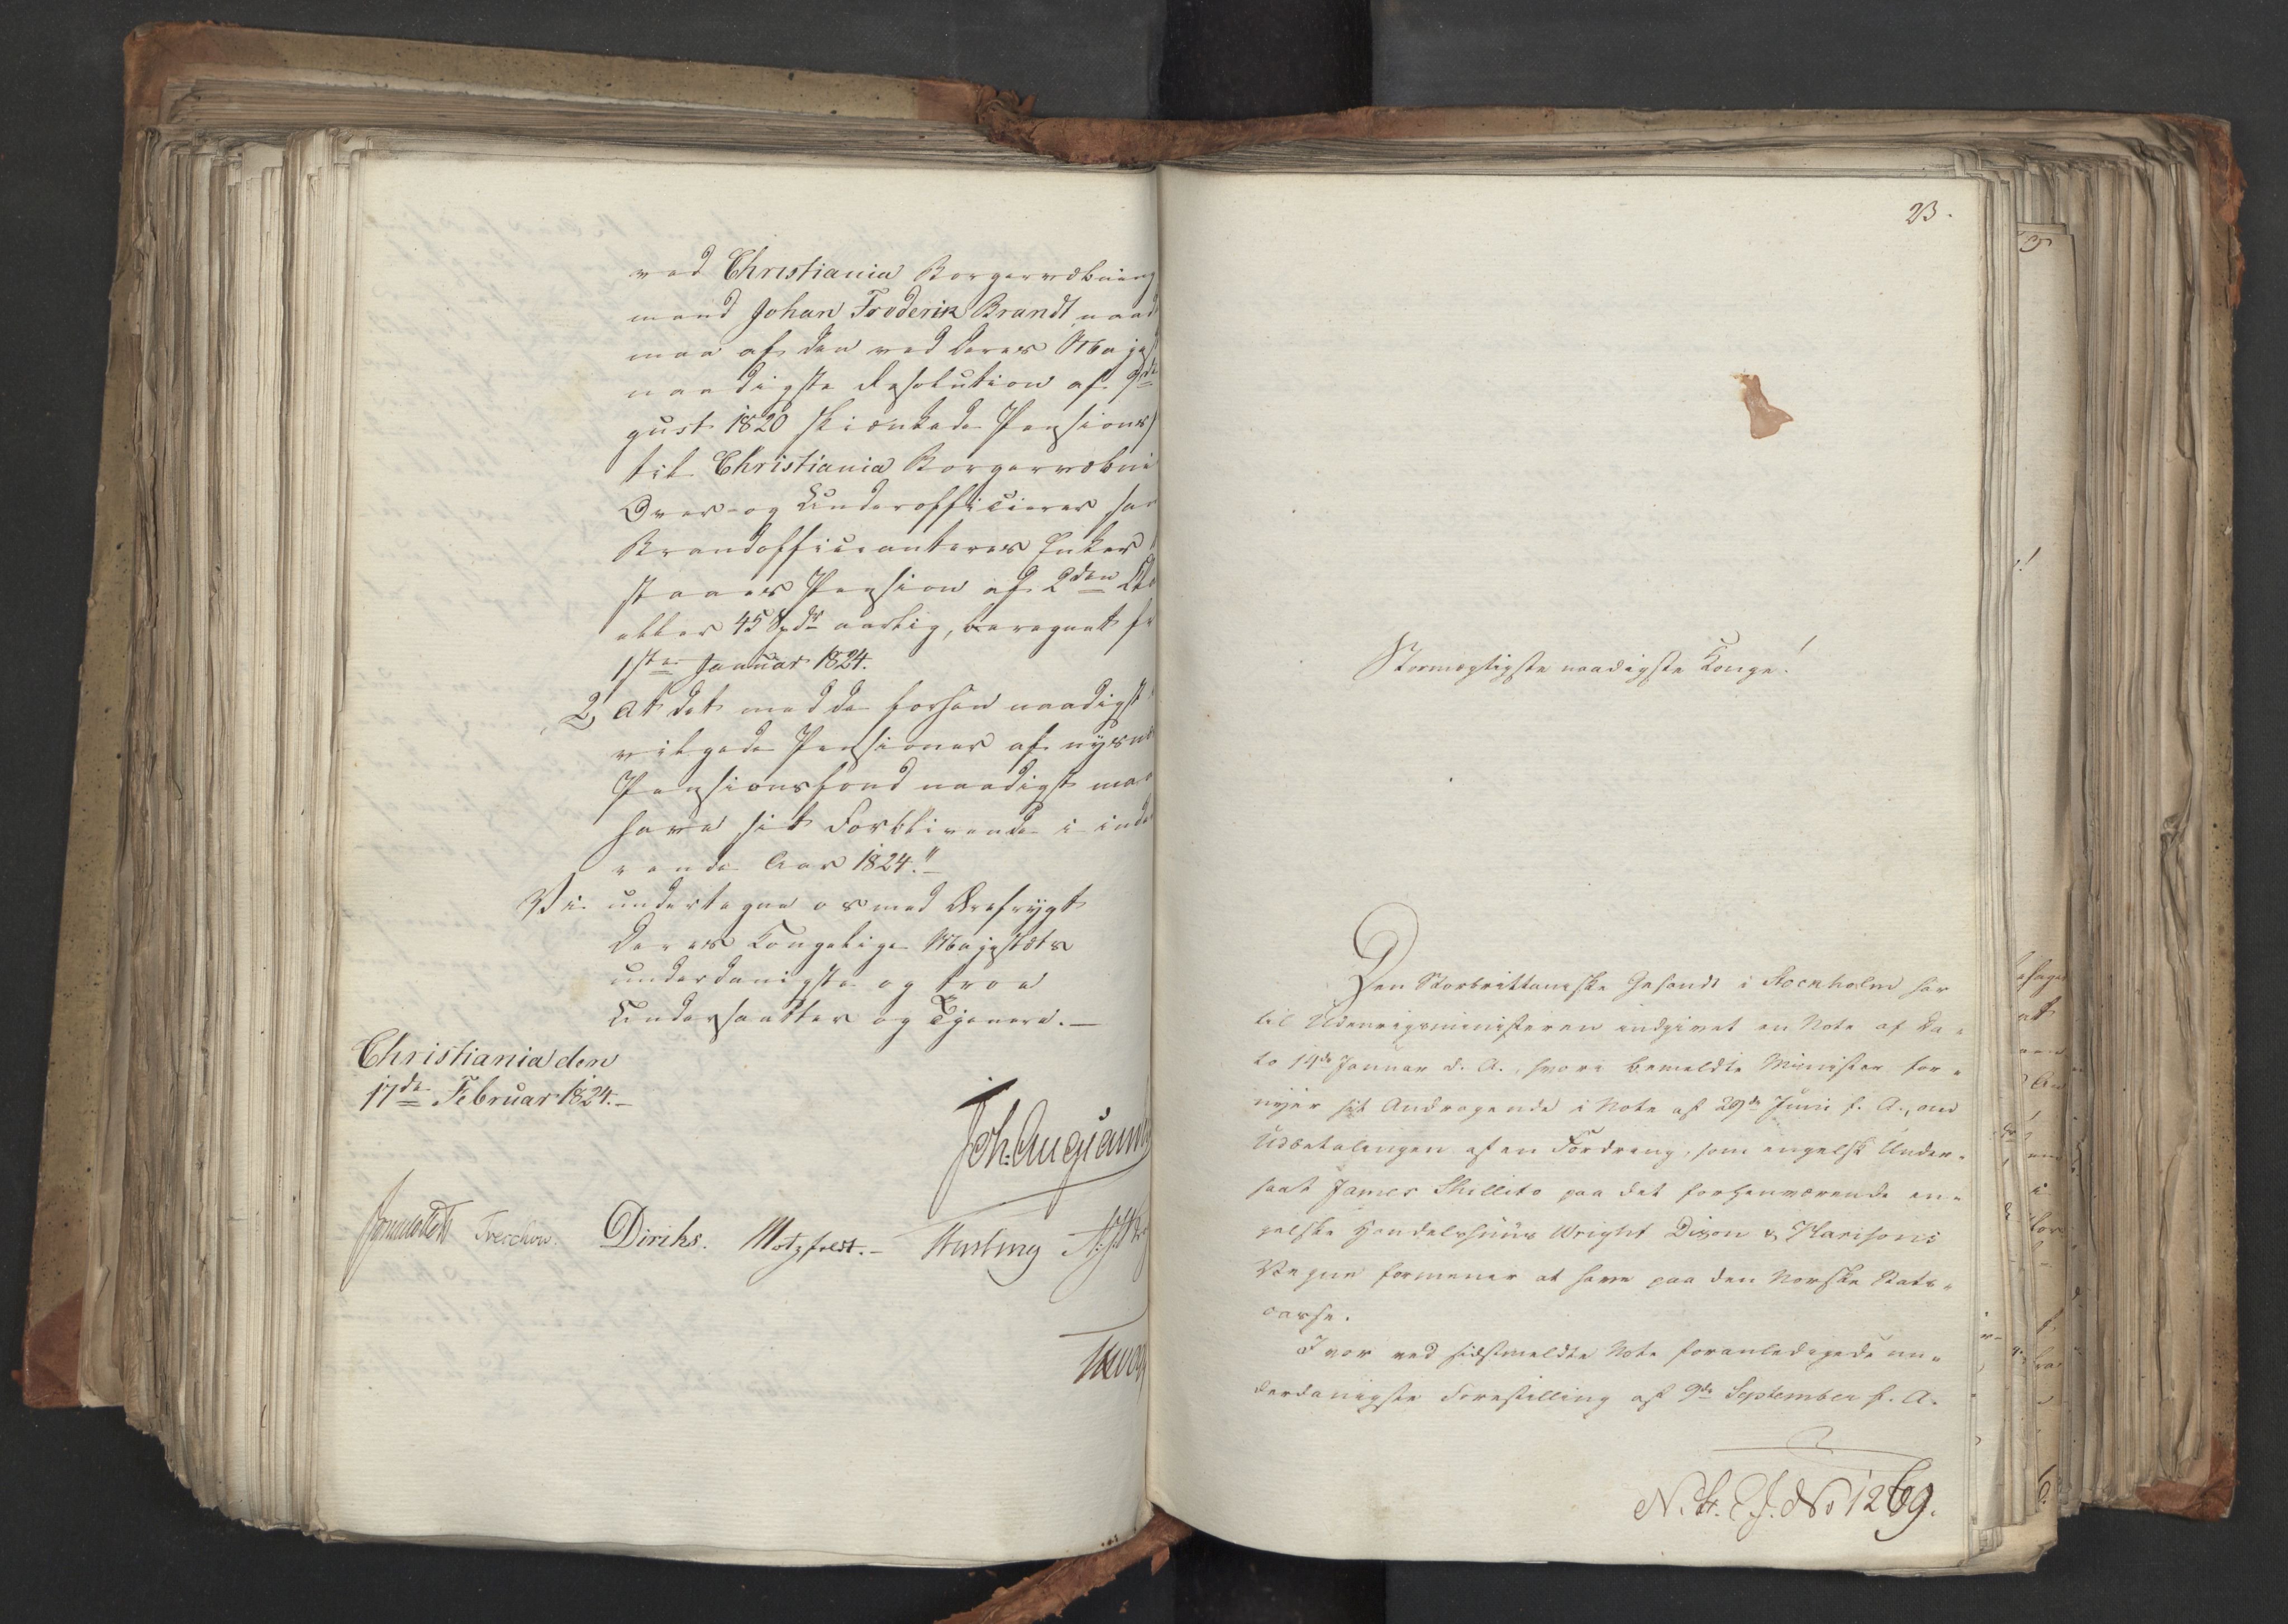 ved Christiania Borgervæbning
mand Johan Frederik Brandt naad
maa af den ved Deres Majes
naadigste Resolution af 9de
gust 1820 skiænkede Pensions
til Christiania Borgervæbni
Over- og Underofficierer sa
Brandofficianteres Enker
staaes Pension af 2den
eller 45 Spdr aarlig, beregnet fr
1ste Januar 1824.
2, At det med de forhen naadigst
vilgede Pensioner af nys
Pensionsfond naadigst maa
have sit Forblivende i inde
rende Aar 1824."
Vi undertegne os med Ærefrygt
Deres Kongelige Majestæts
underdanigste og troe
Undersaatter og Tjenere.—
Christiania den
17de Februar 1824.—
Joh: Aug
Sommerhielm Treschow. Diriks. Motzfeldt.— Krog
23.
Stormægtigste naadigste Konge!
Den Storbrittaniske Gesandt i Stockholm har
til Udenrigsministeren indgivet en Note af Da-
to 14de Januar d. A., hvori bemeldte Minister for-
nyer sit Andragende i Note af 29de Juni f. A., om
Udbetalingen af en Fordring, som engelsk Under-
saat James Shillito paa det forhenværende en-
gelske Handelshuus Wright Dixon & Harisons
Vegne formener at have paa den Norske Stats-
casse.
I vor ved sidstmeldte Note foranledigede un-
derdanigste Forestilling af 9de September f. A.
No 1269.